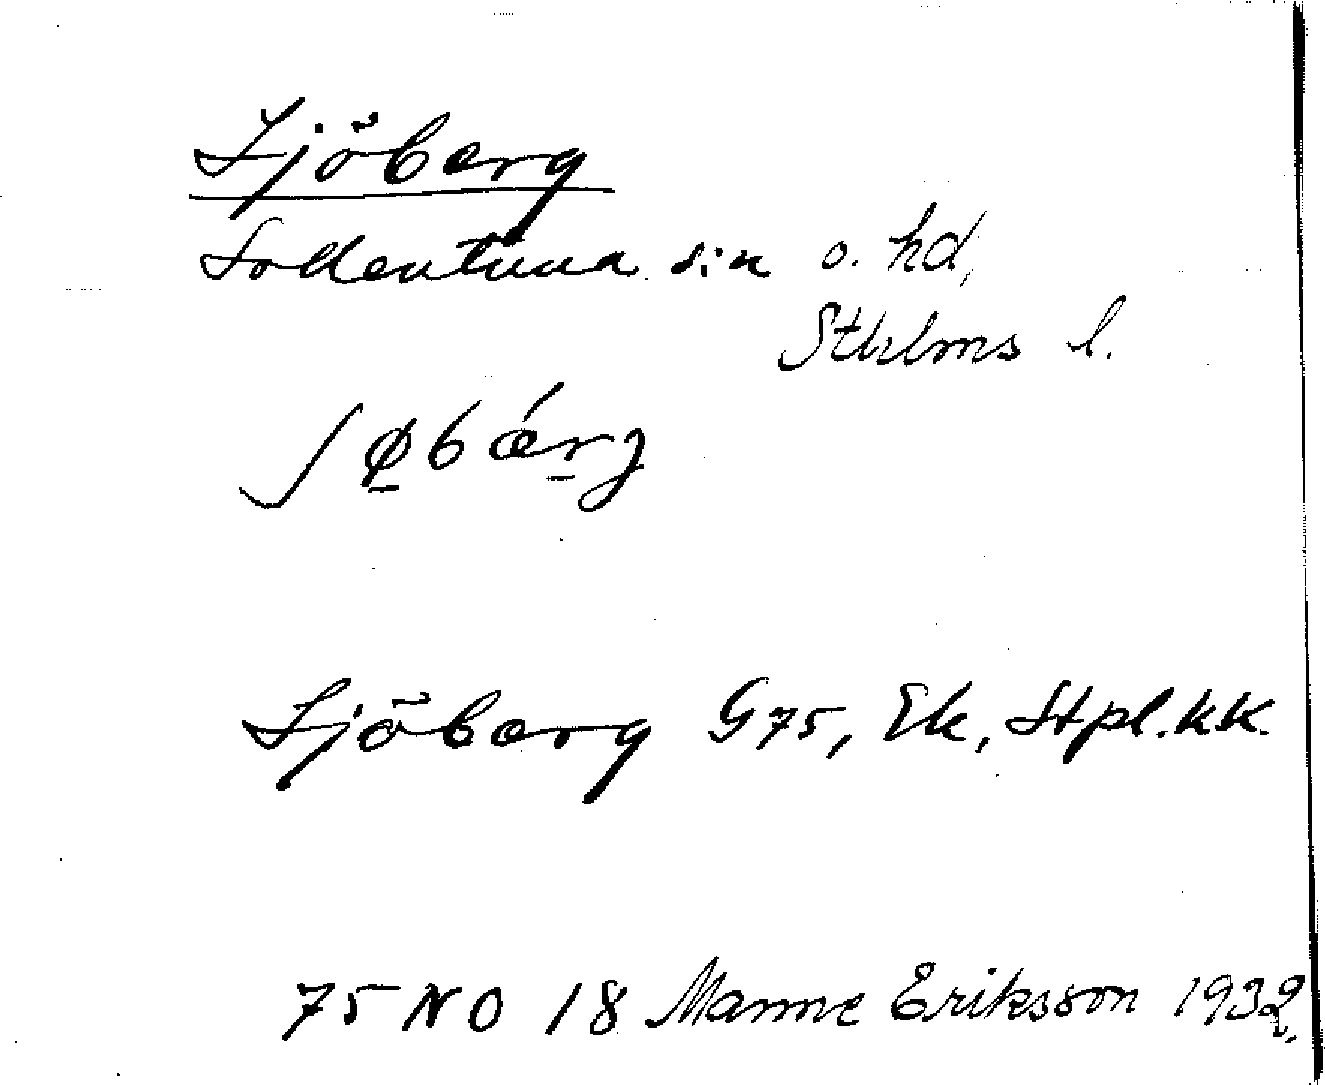 Sjöberg
Sollentuna s:n o. hd,
Sthlms l.
ʃøbærj
Sjöberg G75, Ek, Stpl.kK.
75 NO 18 Manne Eriksson 1932.